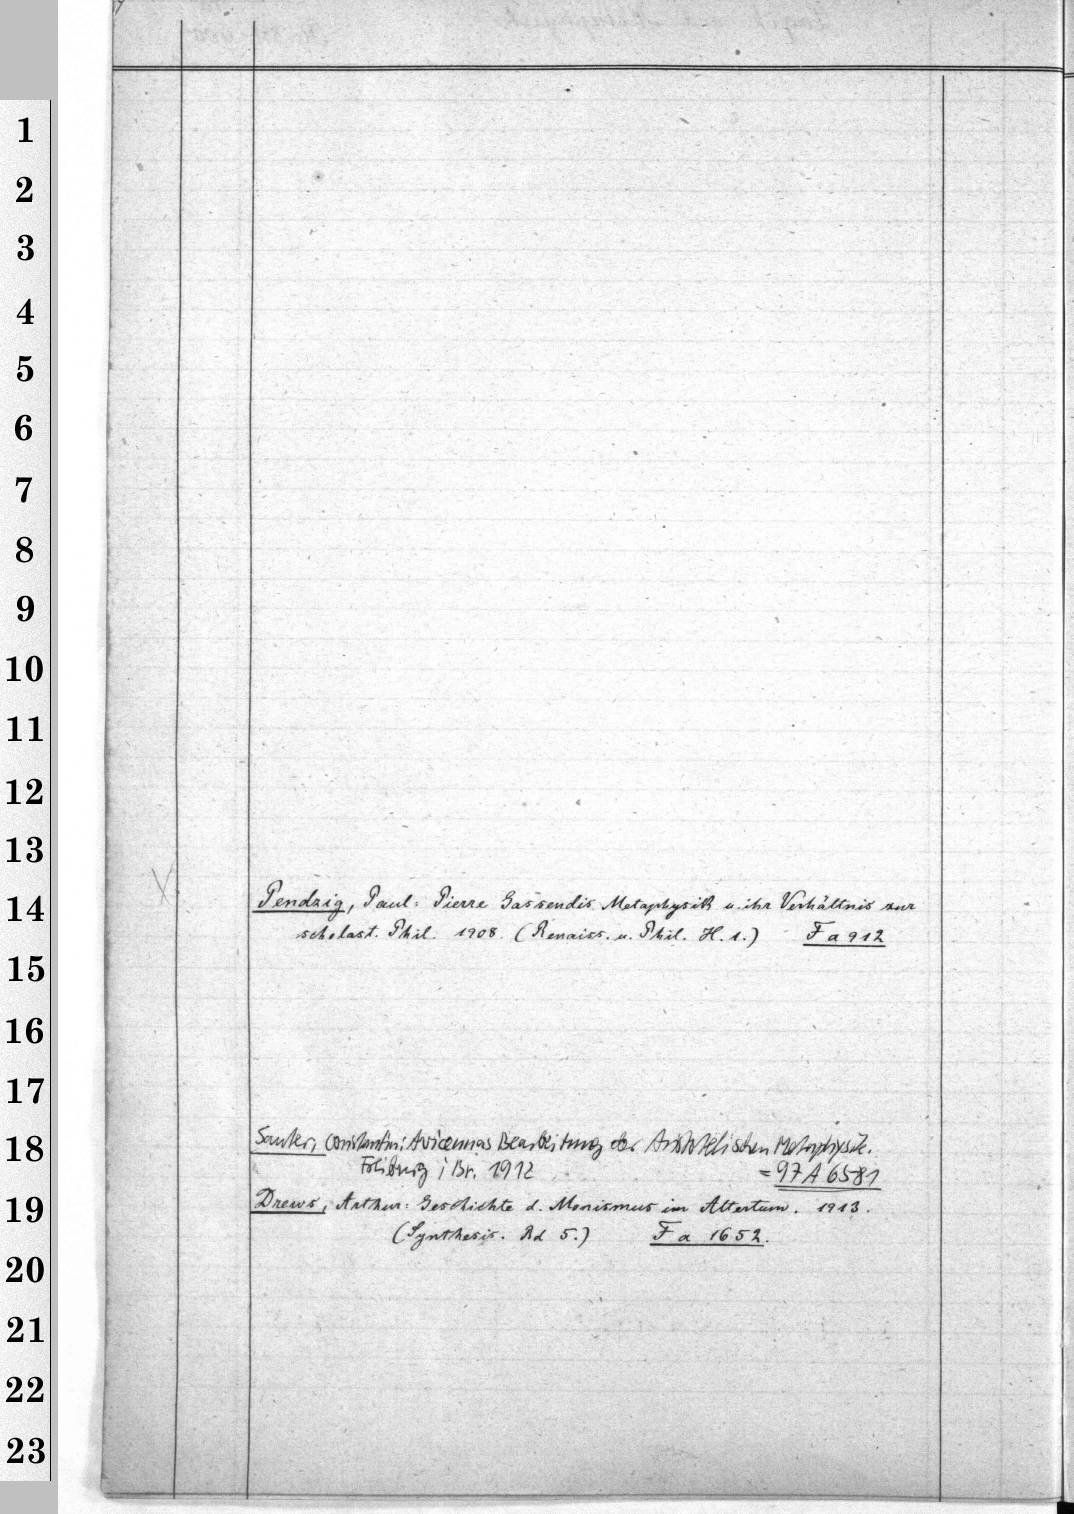 1
2
3
4
5
6
7
8
9
10
11
12
13
14
Pendzig, Paul: Pierre Gassendis Metaphysik u. ihr Verhältnis zur
scholast. Phil. 1908. (Renaiss. u. Phil. H. 1.) Fa 912
15
16
17
18
Sauter, Constantin: Avicennas Bearbeitung der Aristotelischen Metaphysik.
Freiburg i Br. 1912 = 97 A 6581
19
Drews, Arthur: Geschichte d. Monismus im Altertum. 1913.
(Synthesis. Bd 5.) Fa 1652.
20
21
22
23